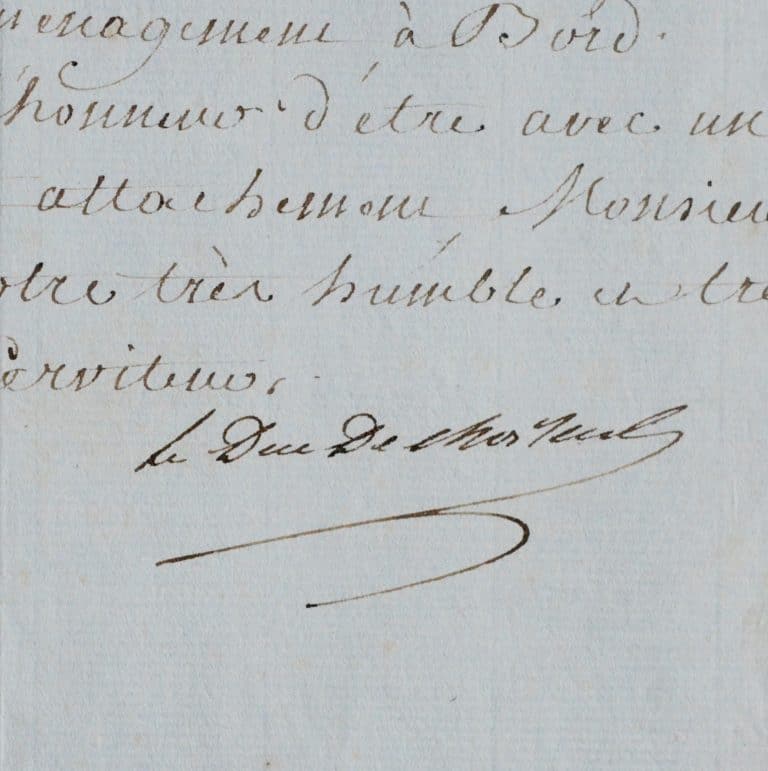 ménagement à Bord.
l'honneur d'être avec un
attachement, Monsieu
otre très humble et trè
Serviteur,
le Duc De choiseul